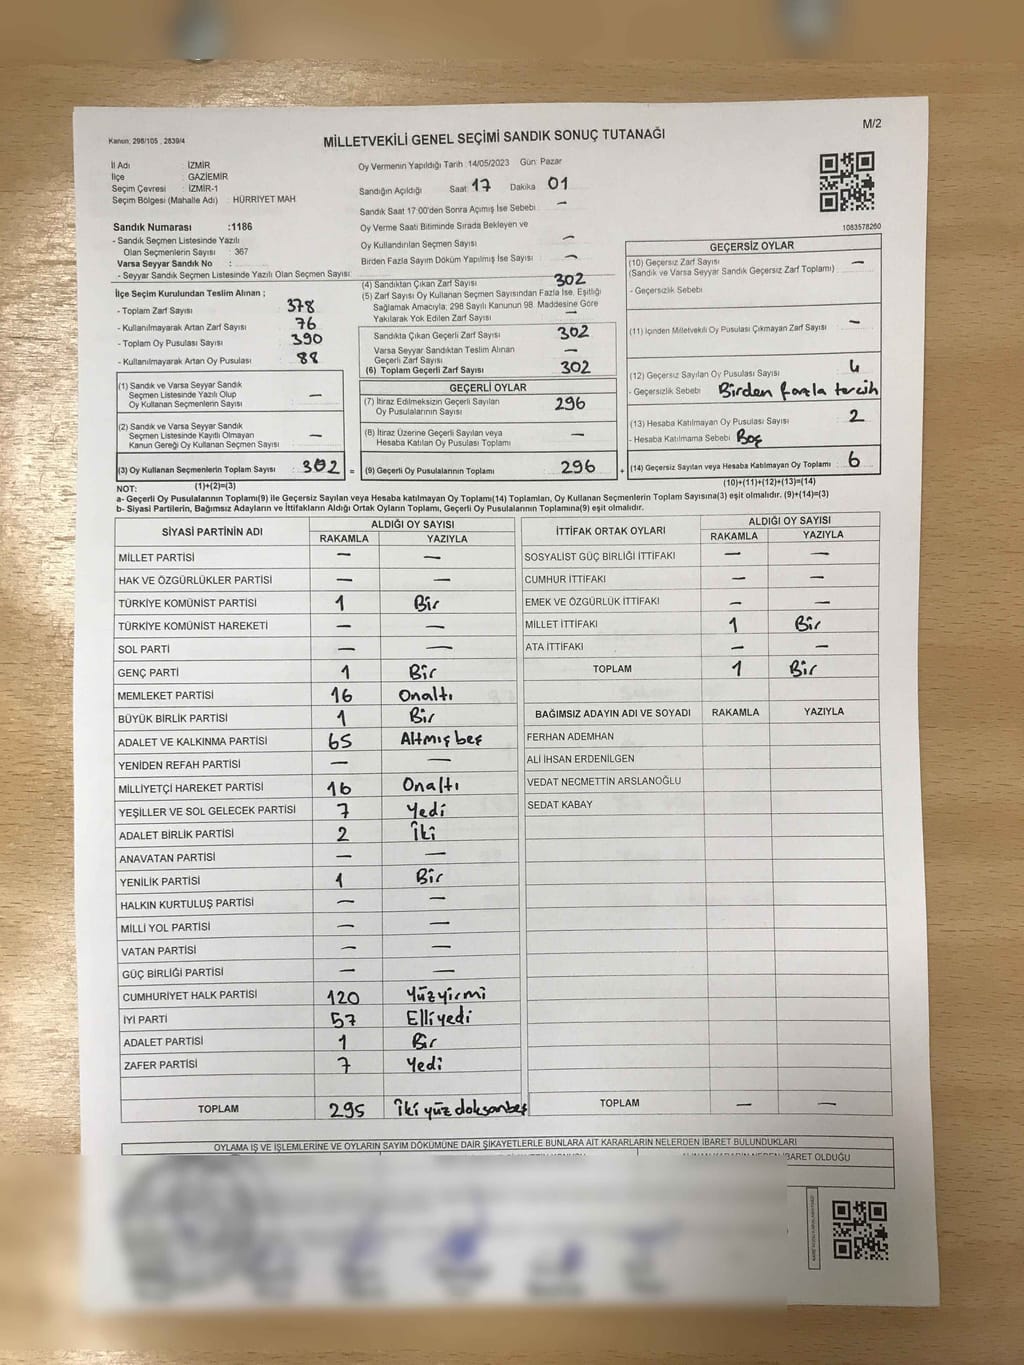 Kanon: 298/105 , 2839/4
MİLLETVEKİLİ GENEL SEÇİMİ SANDIK SONUÇ TUTANAĞI
M/2
İl Adı : İZMİR
İlçe : GAZİEMİR
Seçim Çevresi : İZMİR-1
Seçim Bölgesi (Mahalle Adı) : HÜRRİYET MAH
Oy Vermenin Yapıldığı Tarih :14/05/2023 Gün: Pazar
Sandığın Açıldığı Saat 17 Dakika 01
Sandık Saat 17:00'den Sonra Açımış İse Sebebi : —
Oy Verme Saati Bitiminde Sırada Bekleyen ve
Oy Kullandırılan Seçmen Sayısı —
Birden Fazla Sayım Döküm Yapılmış İse Sayısı : —
1083578260
Sandık Numarası :1186
- Sandık Seçmen Listesinde Yazılı
Olan Seçmenlerin Sayısı : 367
Varsa Seyyar Sandık No :
- Seyyar Sandık Seçmen Listesinde Yazılı Olan Seçmen Sayısı:
İlçe Seçim Kurulundan Teslim Alınan ;
- Toplam Zarf Sayısı : 378
- Kullanılmayarak Artan Zarf Sayısı : 76
- Toplam Oy Pusulası Sayısı : 390
- Kullanılmayarak Artan Oy Pusulası : 88
(1) Sandık ve Varsa Seyyar Sandık
Seçmen Listesinde Yazılı Olup
Oy Kullanan Seçmenlerin Sayısı —
(2) Sandık ve Varsa Seyyar Sandık
Seçmen Listesinde Kayıtlı Olmayan
Kanun Gereği Oy Kullanan Seçmen Sayısı —
(3) Oy Kullanan Seçmenlerin Toplam Sayısı : 302 =
(1)+(2)=(3)
(4) Sandıktan Çıkan Zarf Sayısı : 302
(5) Zarf Sayısı Oy Kullanan Seçmen Sayısından Fazla İse, Eşitliği
Sağlamak Amacıyla, 298 Sayılı Kanunun 98. Maddesine Göre
Yakılarak Yok Edilen Zarf Sayısı : —
Sandıkta Çıkan Geçerli Zarf Sayısı : 302
Varsa Seyyar Sandıktan Teslim Alınan
Geçerli Zarf Sayısı : —
(6) Toplam Geçerli Zarf Sayısı : 302
GEÇERLİ OYLAR
(7) İtiraz Edilmeksizin Geçerli Sayılan
Oy Pusulalarının Sayısı : 296
(8) İtiraz Üzerine Geçerli Sayılan veya
Hesaba Katılan Oy Pusulası Toplamı : —
(9) Geçerli Oy Pusulalarının Toplamı : 296 +
GEÇERSİZ OYLAR
(10) Geçersiz Zarf Sayısı : —
(Sandık ve Varsa Seyyar Sandık Geçersiz Zarf Toplamı)
- Geçersizlik Sebebi :
(11) İçinden Milletvekili Oy Pusulası Çıkmayan Zarf Sayısı : —
(12) Geçersiz Sayılan Oy Pusulası Sayısı : 4
- Geçersizlik Sebebi : Birden fazla tercih
(13) Hesaba Katılmayan Oy Pusulası Sayısı : 2
- Hesaba Katılmama Sebebi : Boş
(14) Geçersiz Sayılan veya Hesaba Katılmayan Oy Toplamı : 6
(10)+(11)+(12)+(13)=(14)
NOT:
a- Geçerli Oy Pusulalarının Toplamı(9) ile Geçersiz Sayılan veya Hesaba katılmayan Oy Toplamı(14) Toplamları, Oy Kullanan Seçmenlerin Toplam Sayısına(3) eşit olmalıdır. (9)+(14)=(3)
b- Siyasi Partilerin, Bağımsız Adayların ve İttifakların Aldığı Ortak Oyların Toplamı, Geçerli Oy Pusulalarının Toplamına(9) eşit olmalıdır.
SİYASİ PARTİNİN ADI ALDIĞI OY SAYISI
RAKAMLA YAZIYLA
MİLLET PARTİSİ — —
HAK VE ÖZGÜRLÜKLER PARTİSİ — —
TÜRKİYE KOMÜNİST PARTİSİ 1 Bir
TÜRKİYE KOMÜNİST HAREKETİ — —
SOL PARTİ — —
GENÇ PARTİ 1 Bir
MEMLEKET PARTİSİ 16 Onaltı
BÜYÜK BİRLİK PARTİSİ 1 Bir
ADALET VE KALKINMA PARTİSİ 65 Altmışbeş
YENİDEN REFAH PARTİSİ — —
MİLLİYETÇİ HAREKET PARTİSİ 16 Onaltı
YEŞİLLER VE SOL GELECEK PARTİSİ 7 Yedi
ADALET BİRLİK PARTİSİ 2 İki
ANAVATAN PARTİSİ — —
YENİLİK PARTİSİ 1 Bir
HALKIN KURTULUŞ PARTİSİ — —
MİLLİ YOL PARTİSİ — —
VATAN PARTİSİ — —
GÜÇ BİRLİĞİ PARTİSİ — —
CUMHURİYET HALK PARTİSİ 120 Yüzyirmi
İYİ PARTİ 57 Elliyedi
ADALET PARTİSİ 1 Bir
ZAFER PARTİSİ 7 Yedi
TOPLAM 295 İki yüz doksanbeş
İTTİFAK ORTAK OYLARI ALDIĞI OY SAYISI
RAKAMLA YAZIYLA
SOSYALİST GÜÇ BİRLİĞİ İTTİFAKI — —
CUMHUR İTTİFAKI — —
EMEK VE ÖZGÜRLÜK İTTİFAKI — —
MİLLET İTTİFAKI 1 Bir
ATA İTTİFAKI — —
TOPLAM 1 Bir
BAĞIMSIZ ADAYIN ADI VE SOYADI RAKAMLA YAZIYLA
FERHAN ADEMHAN
ALİ İHSAN ERDENİLGEN
VEDAT NECMETTİN ARSLANOĞLU
SEDAT KABAY
TOPLAM — —
OYLAMA İŞ VE İŞLEMLERİNE VE OYLARIN SAYIM DÖKÜMÜNE DAİR ŞİKAYETLERLE BUNLARA AİT KARARLARIN NELERDEN İBARET BULUNDUKLARI
İBARET OLDUĞU